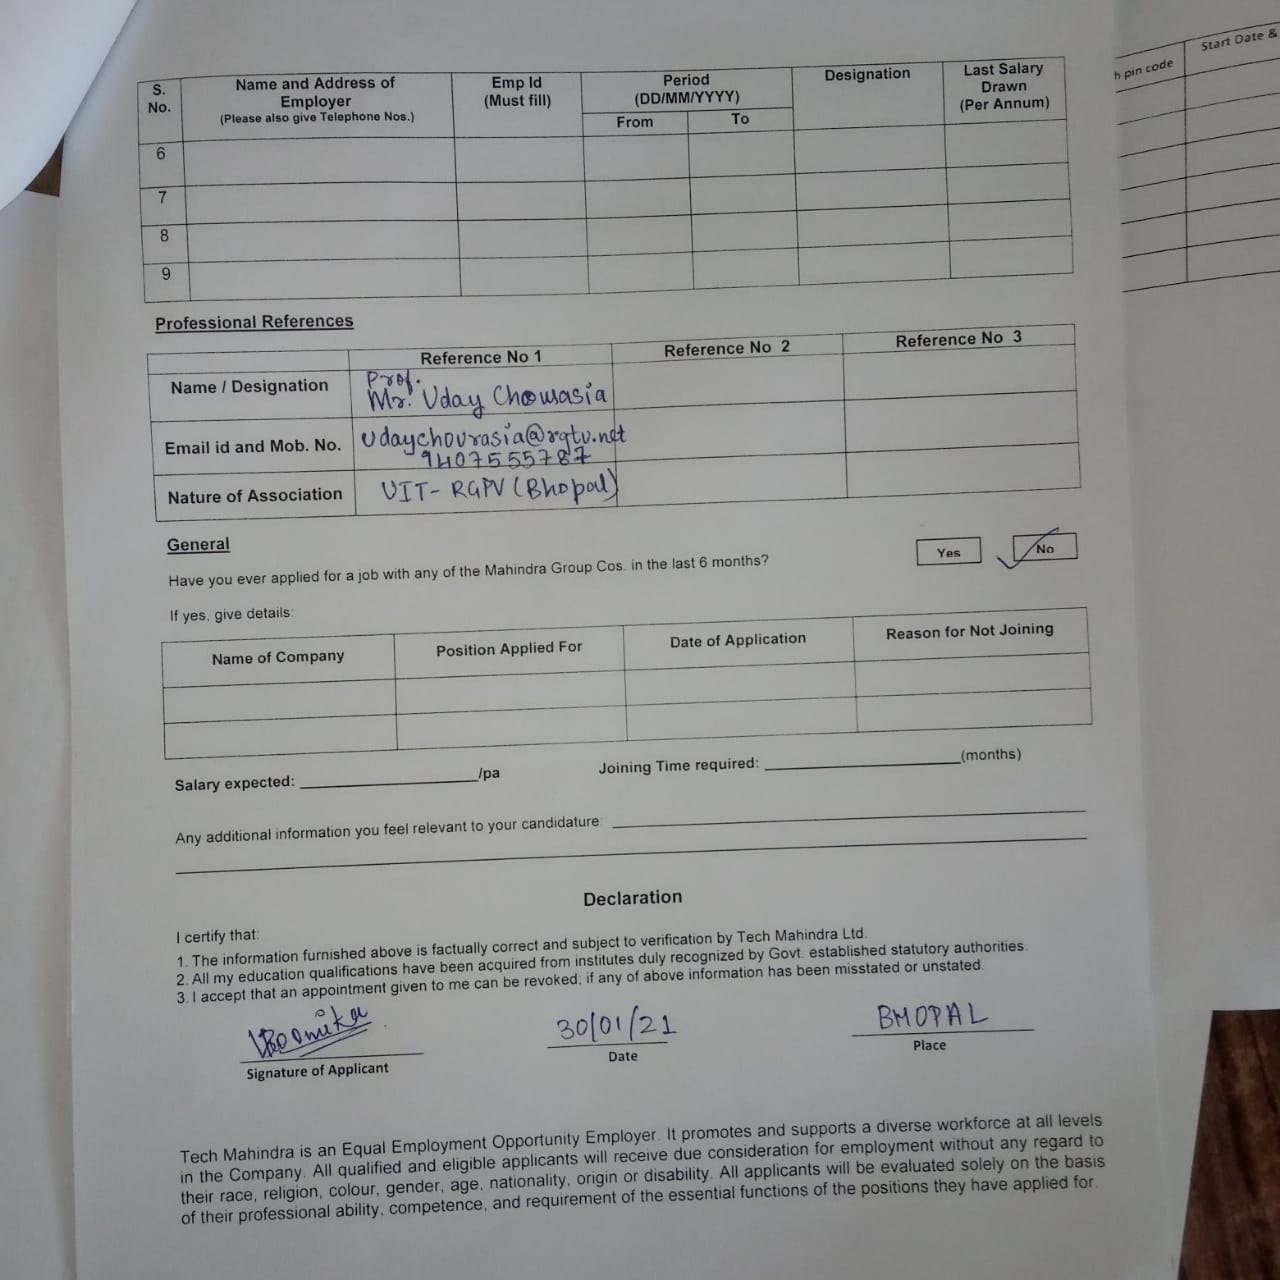 S. No. Name and Address of Employer (Please also give Telephone Nos.) Emp Id (Must fill) Period (DD/MM/YYYY) From To Designation Last Salary Drawn (Per Annum)
6
7
8
9
pin code Start Date &
Professional References
Reference No 1 Reference No 2 Reference No 3
Name / Designation Prof. Mr. Uday Chourasia
Email id and Mob. No. udaychourasia@rgtu.net 9407555787
Nature of Association UIT- RGPV (Bhopal)
General
Have you ever applied for a job with any of the Mahindra Group Cos. in the last 6 months? Yes No
If yes, give details:
Name of Company Position Applied For Date of Application Reason for Not Joining
Salary expected: /pa Joining Time required: (months)
Any additional information you feel relevant to your candidature:
Declaration
I certify that:
1. The information furnished above is factually correct and subject to verification by Tech Mahindra Ltd.
2. All my education qualifications have been acquired from institutes duly recognized by Govt. established statutory authorities.
3. I accept that an appointment given to me can be revoked; if any of above information has been misstated or unstated.
30/01/21 BHOPAL
Signature of Applicant Date Place
Tech Mahindra is an Equal Employment Opportunity Employer. It promotes and supports a diverse workforce at all levels
in the Company. All qualified and eligible applicants will receive due consideration for employment without any regard to
their race, religion, colour, gender, age, nationality, origin or disability. All applicants will be evaluated solely on the basis
of their professional ability, competence, and requirement of the essential functions of the positions they have applied for.